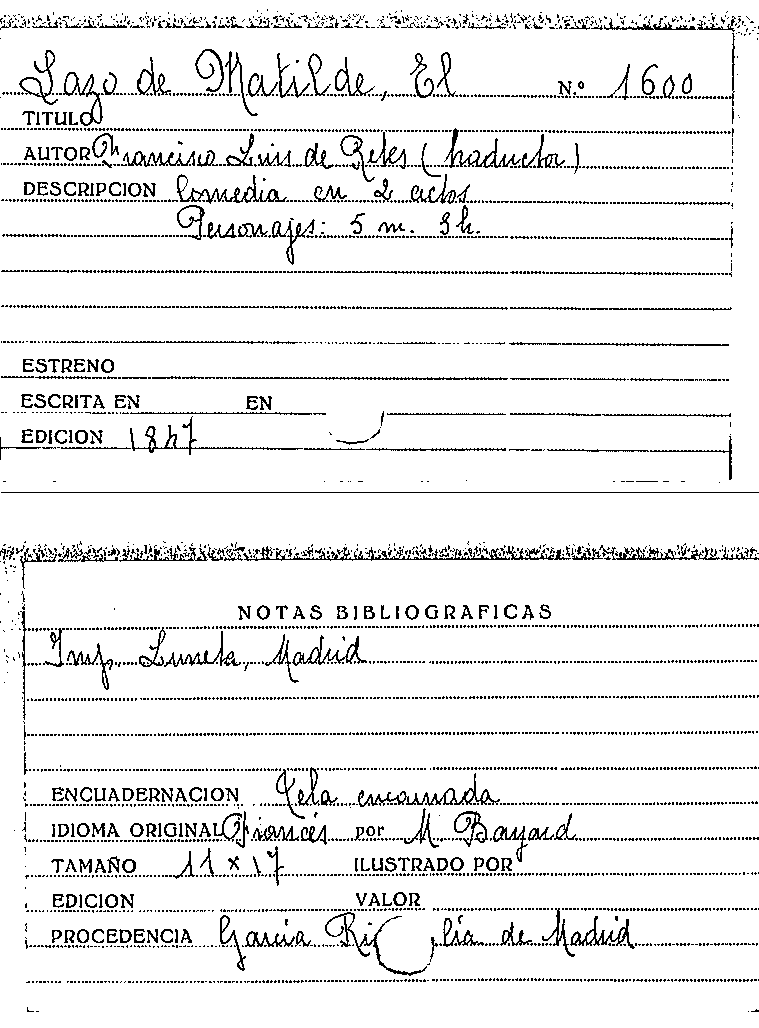 Lazo de Matilde, El N.º 1600
TITULO
AUTOR Francisco Luis de Retes (traductor)
DESCRIPCION Comedia en 2 actos
Personajes: 5 m. 3 h.
ESTRENO
ESCRITA EN EN
EDICION 1847
NOTAS BIBLIOGRAFICAS
Imp. Luneta, Madrid
ENCUADERNACION Tela encarnada
IDIOMA ORIGINAL Francés por M. Bayard
TAMAÑO 11 x 17 ILUSTRADO POR
EDICION VALOR
PROCEDENCIA Garcia de Madrid